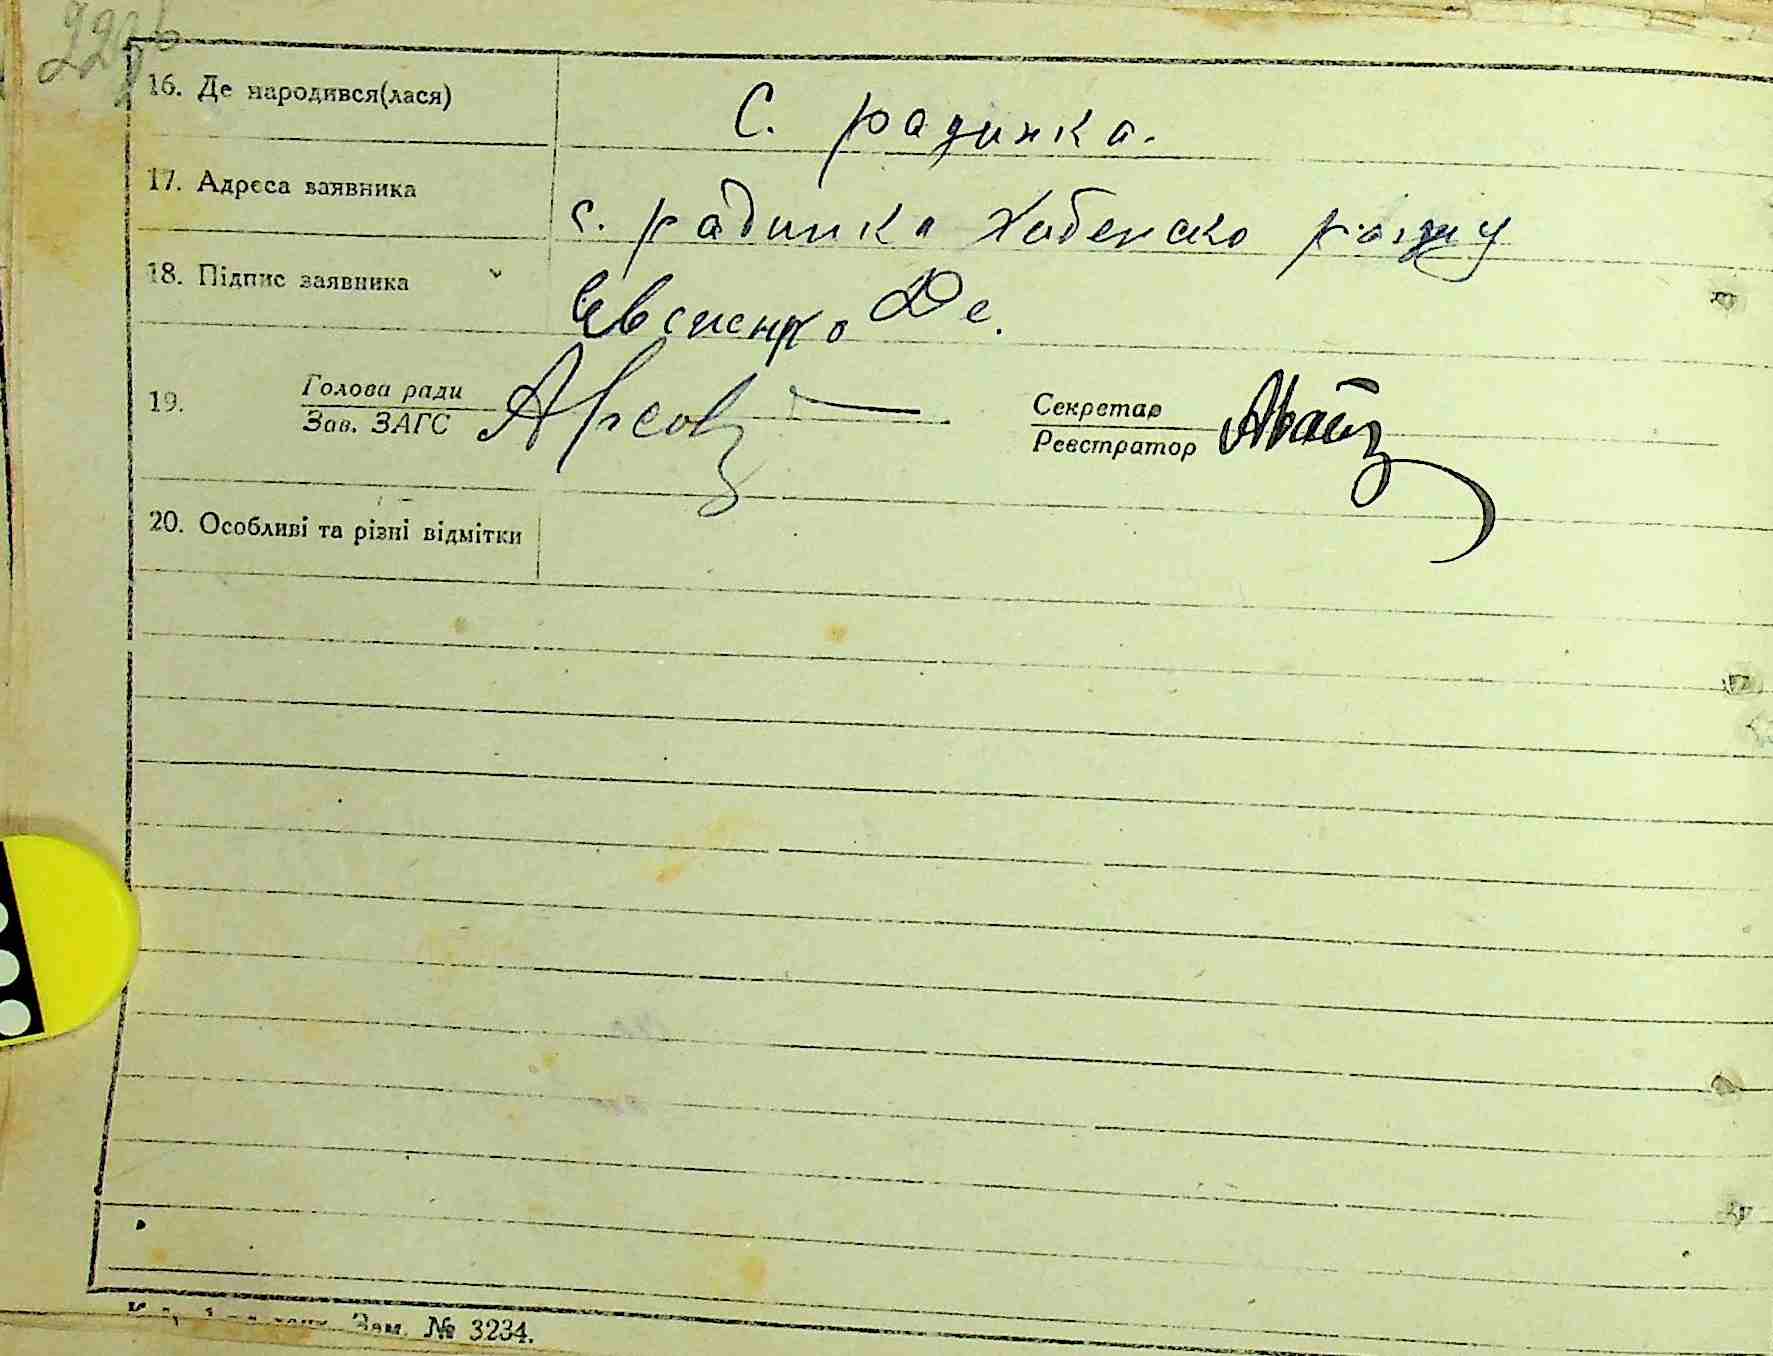 16. Де народився(лася) С. радинка.
17. Адреса заявника с. радинка Хабенско
18. Підпис заявника Євсиенко
19. Голова ради Секретар
Зав. ЗАГС Реєстратор
20. Особливі та різні відмітки
Зам. № 3234.